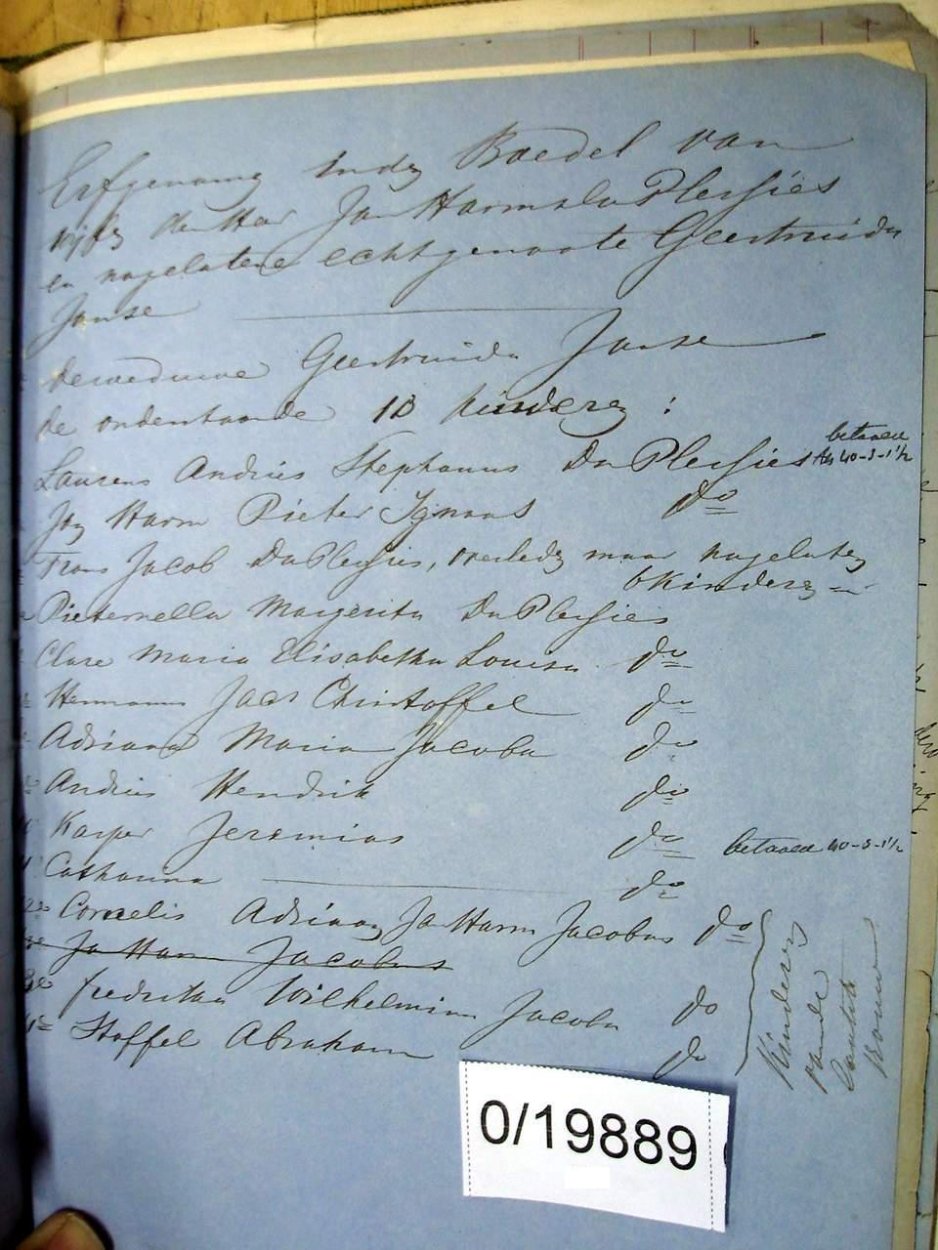 Erfgenamen in den Boedel van
wylen den Heer Jan Harms Du Plessies
en nagelatene echtgenoote Geertruida
Janse
De weduwe Geertruida Janse
de onderstaande 13 kinderen :
Laurens Andries Stephanus Du Plessies betaald 40-3-1½
Jan Harm Pieter Ignaas do
Frans Jacob Du Plessies, overleden maar nagelaten
6 Kinderen
Pieternella Margerita Du Plessies
Clara Maria Elisabetha Louisa do
Hermanus Jaas Christoffel do
Adriana Maria Jacoba do
Andries Hendrik do
Kasper Jeremias do betaald 40-3-1½
Catharina do
Cornelis Adriaan Jan Harm Jacobus do
Jan Harm Jacobus
Fredrika Wilhelmina Jacoba do
Stoffel Abraham do
Kinderen
van de
laatste
vrouw
0/19889